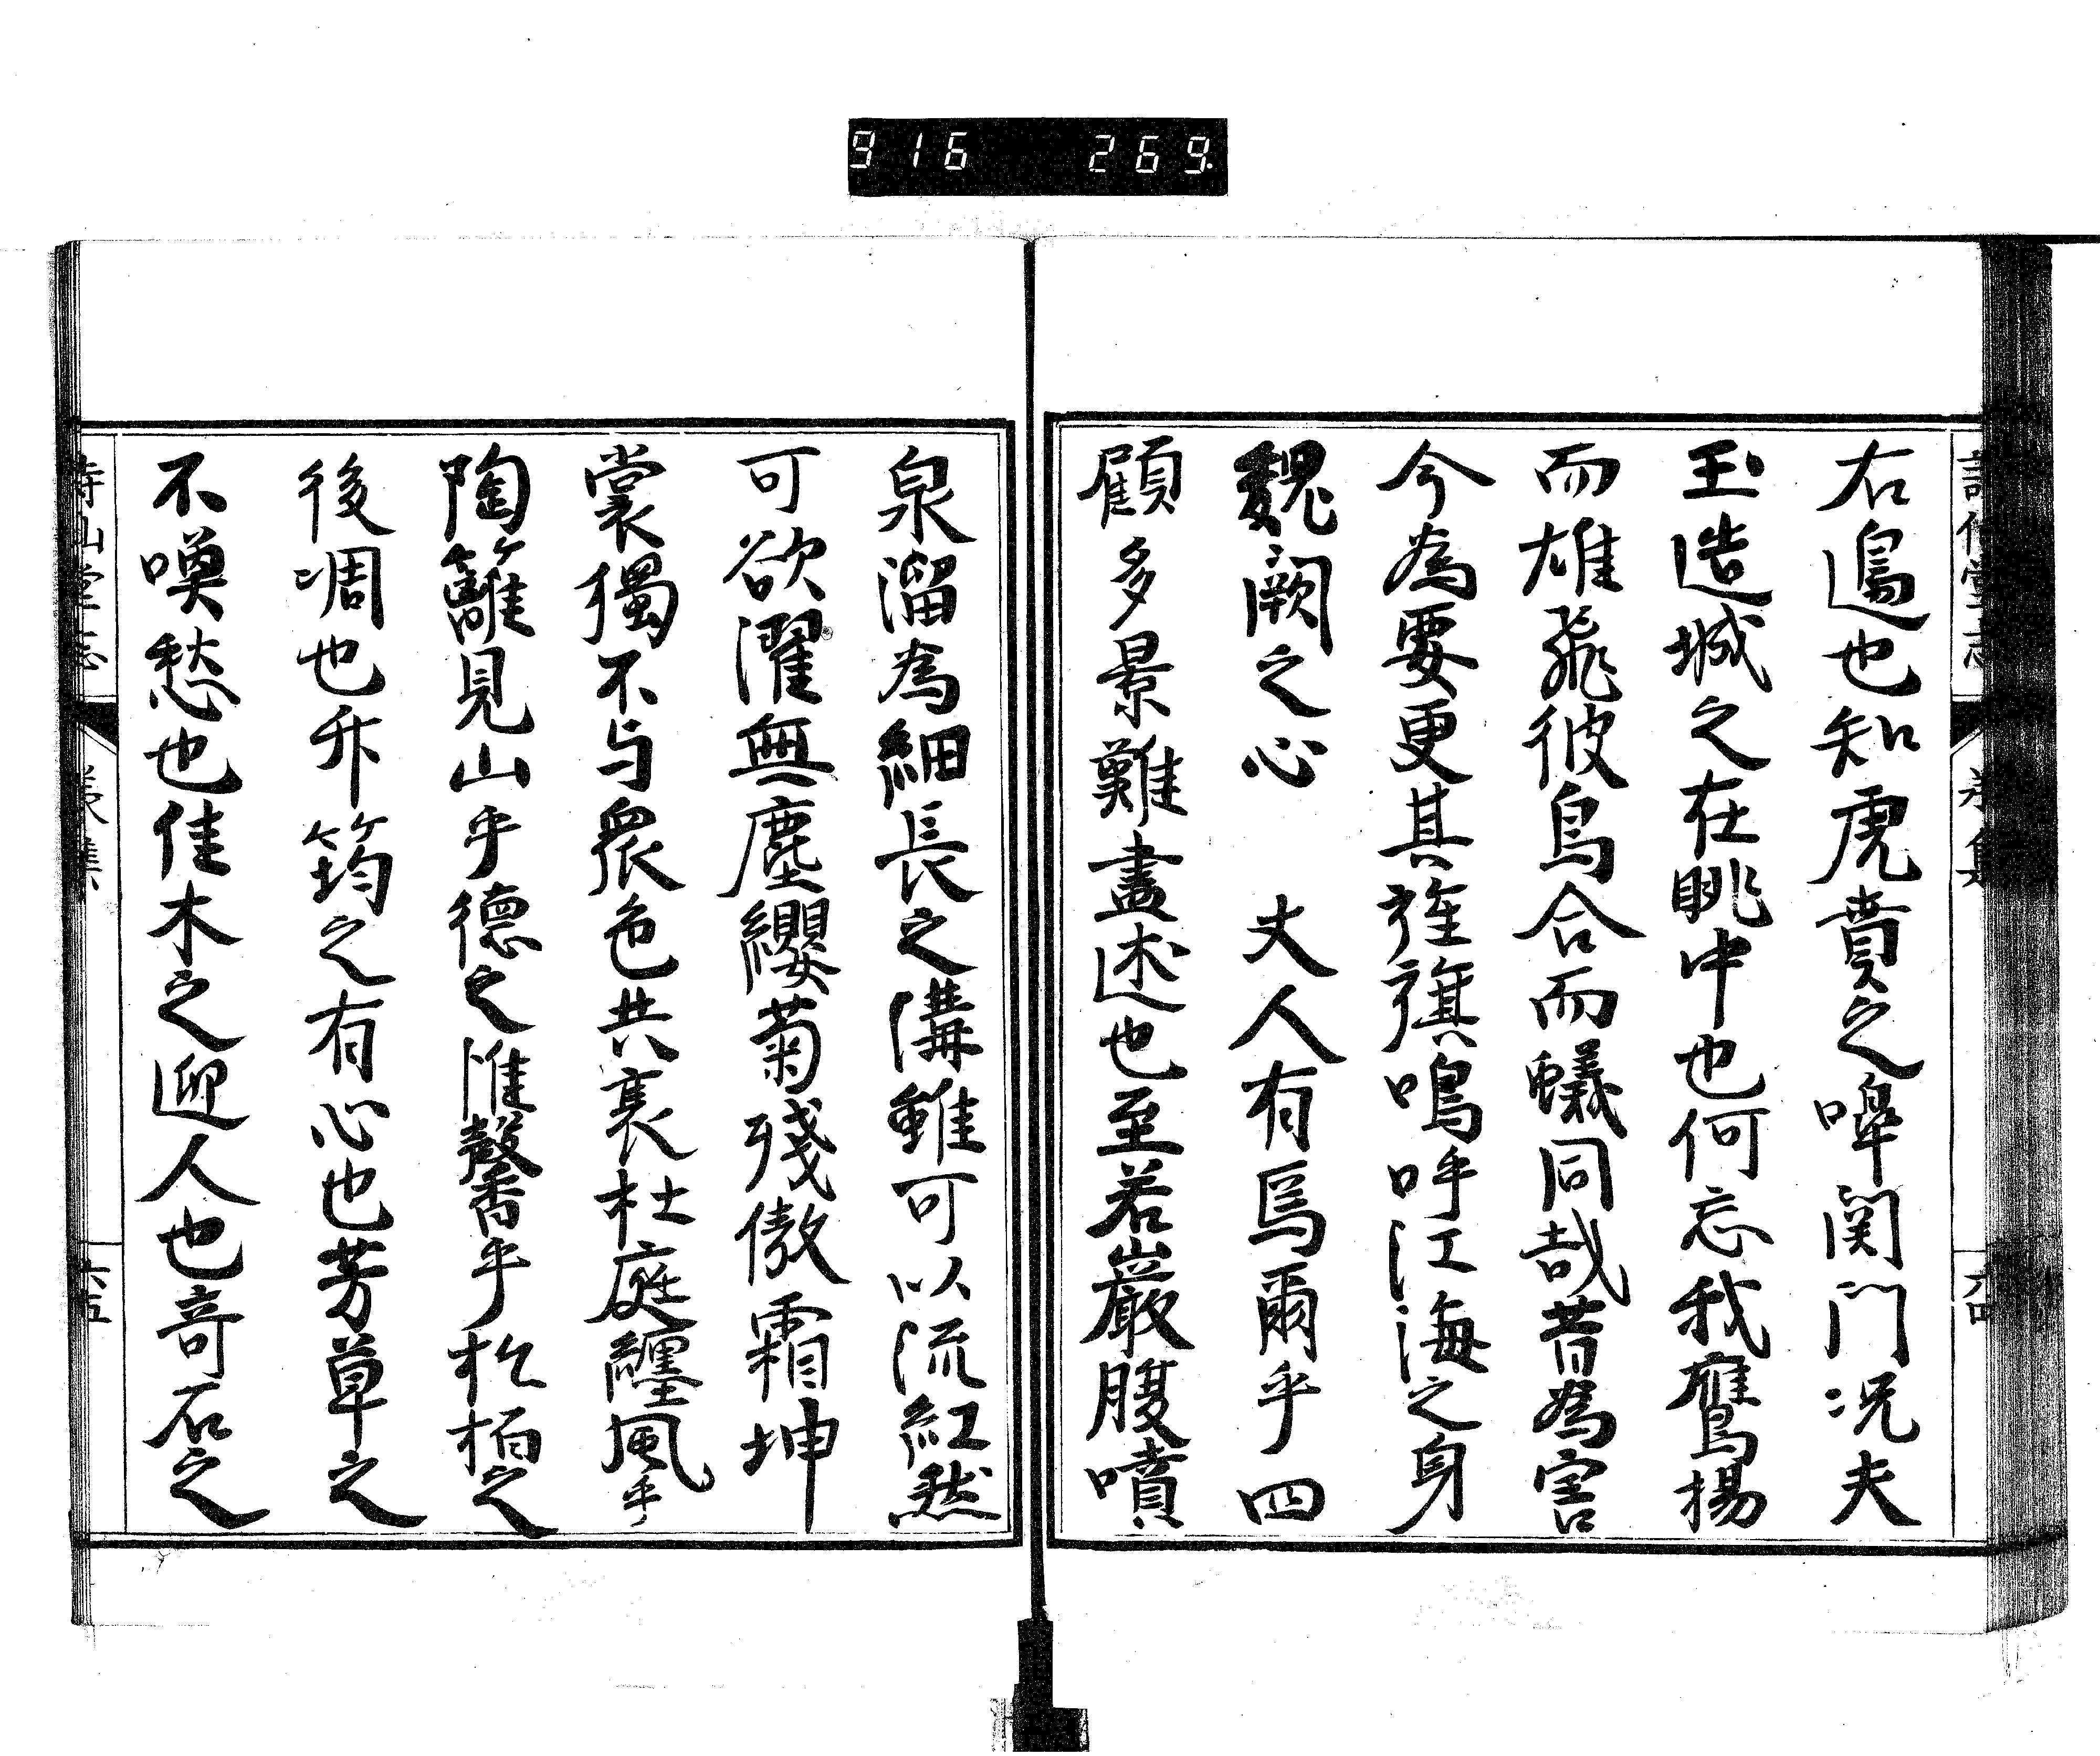 916 269
右邉也知虎賁之嘷関門况夫
玉造城之在眺中也何忘我鷹揚
而雄飛彼烏合而蟻同哉昔為害
今為要更其旌旗鳴呼江海之身
魏闕之心 丈人有焉爾乎四
顧多景難盡述也至若巌腹噴
泉溜為細長之溝雖可以流紅然
可欲濯無塵纓菊残傲霜坤
裳獨不与衆色共衰杜庭纒風乎
陶籬見山乎德之惟馨香乎松柏之
後凋也竹筠之有心也芳草之
不喚愁也佳木之迎人也竒石之
詩仙堂志
六四
詩仙堂志
義集
六五